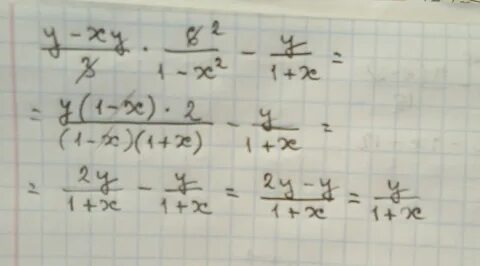 (y - xy)/3 · 6 2/(1 - x²) - y/(1+x) =
= y(1-x) · 2/((1-x)(1+x)) - y/(1+x) =
= 2y/(1+x) - y/(1+x) = (2y - y)/(1+x) = y/(1+x)